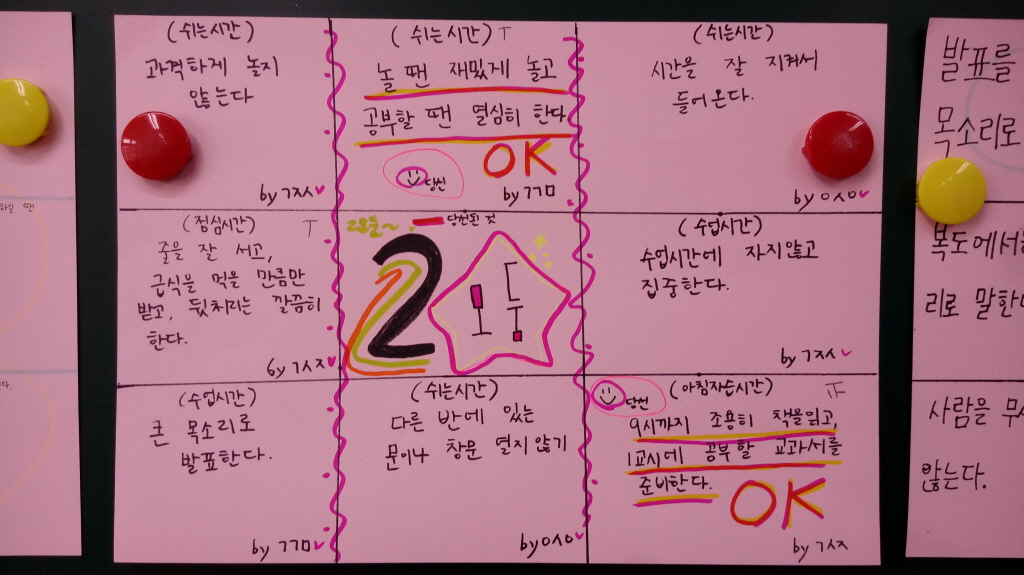 (쉬는시간)
과격하게 놀지
않는다
by ㄱㅈㅅ
(쉬는시간) T
놀 땐 재밌게 놀고
공부할 땐 열심히 한다
OK
당선
by ㄱㄱㅁ
(쉬는시간)
시간을 잘 지켜서
들어온다.
by ㅇㅅㅇ
(점심시간) T
줄을 잘 서고,
급식을 먹을 만큼만
받고, 뒷처리는 깔끔히
한다.
by ㄱㅅㅈ
모둠~
당선된 것
2
(수업시간)
수업시간에 자지않고
집중한다.
by ㄱㅈㅅ
(수업시간)
큰 목소리로
발표한다.
by ㄱㄱㅁ
(쉬는시간)
다른 반에 있는
문이나 창문 열지않기
by ㅇㅅㅇ
(아침자습시간)
당선
9시까지 조용히 책을읽고,
1교시에 공부할 교과서를
준비한다.
OK
by ㄱㅅㅈ
발표를
목소리로
복도에서
리로 말한
사람을 무
않는다.